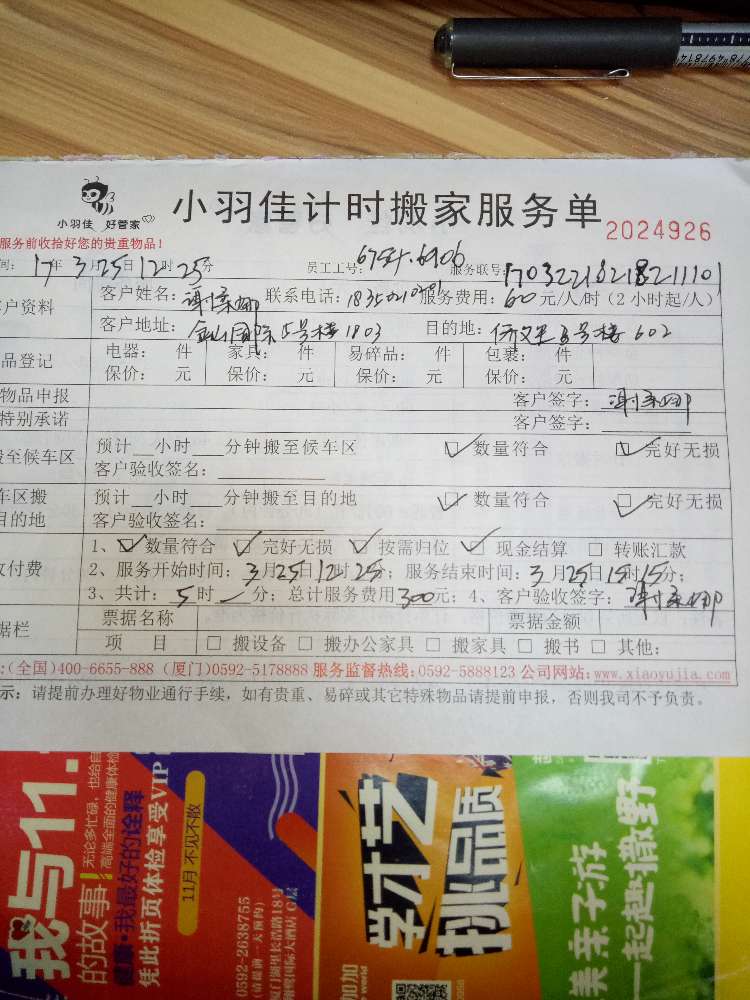 小羽佳 好管家
小羽佳计时搬家服务单
2024926
服务前收拾好您的贵重物品！
间：17年3月25日12时25分 员工工号：6754.6906 服务联号：17032218218211101
客户资料 客户姓名： 联系电话： 服务费用：60元/人/时（2小时起/人）
客户地址：金山国际5号楼1803 目的地：侨文里3号楼602
品登记 电器： 件 家具： 件 易碎品： 件 包裹： 件
保价： 元 保价： 元 保价： 元 保价： 元
物品申报 客户签字：
特别承诺 客户签字：
至候车区 预计 小时 分钟搬至候车区 数量符合 完好无损
客户验收签名：
车区搬 预计 小时 分钟搬至目的地 数量符合 完好无损
目的地 客户验收签名：
付费 1、数量符合 完好无损 按需归位 现金结算 转账汇款
2、服务开始时间：3月25日12时25分；服务结束时间：3月25日15时15分；
3、共计：5时 分；总计服务费用300元；4、客户验收签字：
据栏 票据名称 票据金额
项目 搬设备 搬办公家具 搬家具 搬书 其他：
：(全国)400-6655-888 (厦门)0592-5178888 服务监督热线:0592-5888123 公司网站:www.xiaoyujia.com
示：请提前办理好物业通行手续，如有贵重、易碎或其它特殊物品请提前申报，否则我司不予负责。
我与11.
的故事！
无论多忙碌，也给自
高端全面的健康体检
健康·我最好的诠释
凭此折页体检享受VIP
11月 不见不散
0592-2638755
(请提前一天预约)
学才艺
挑品质
加加
world
美亲子游
一起趣撒野